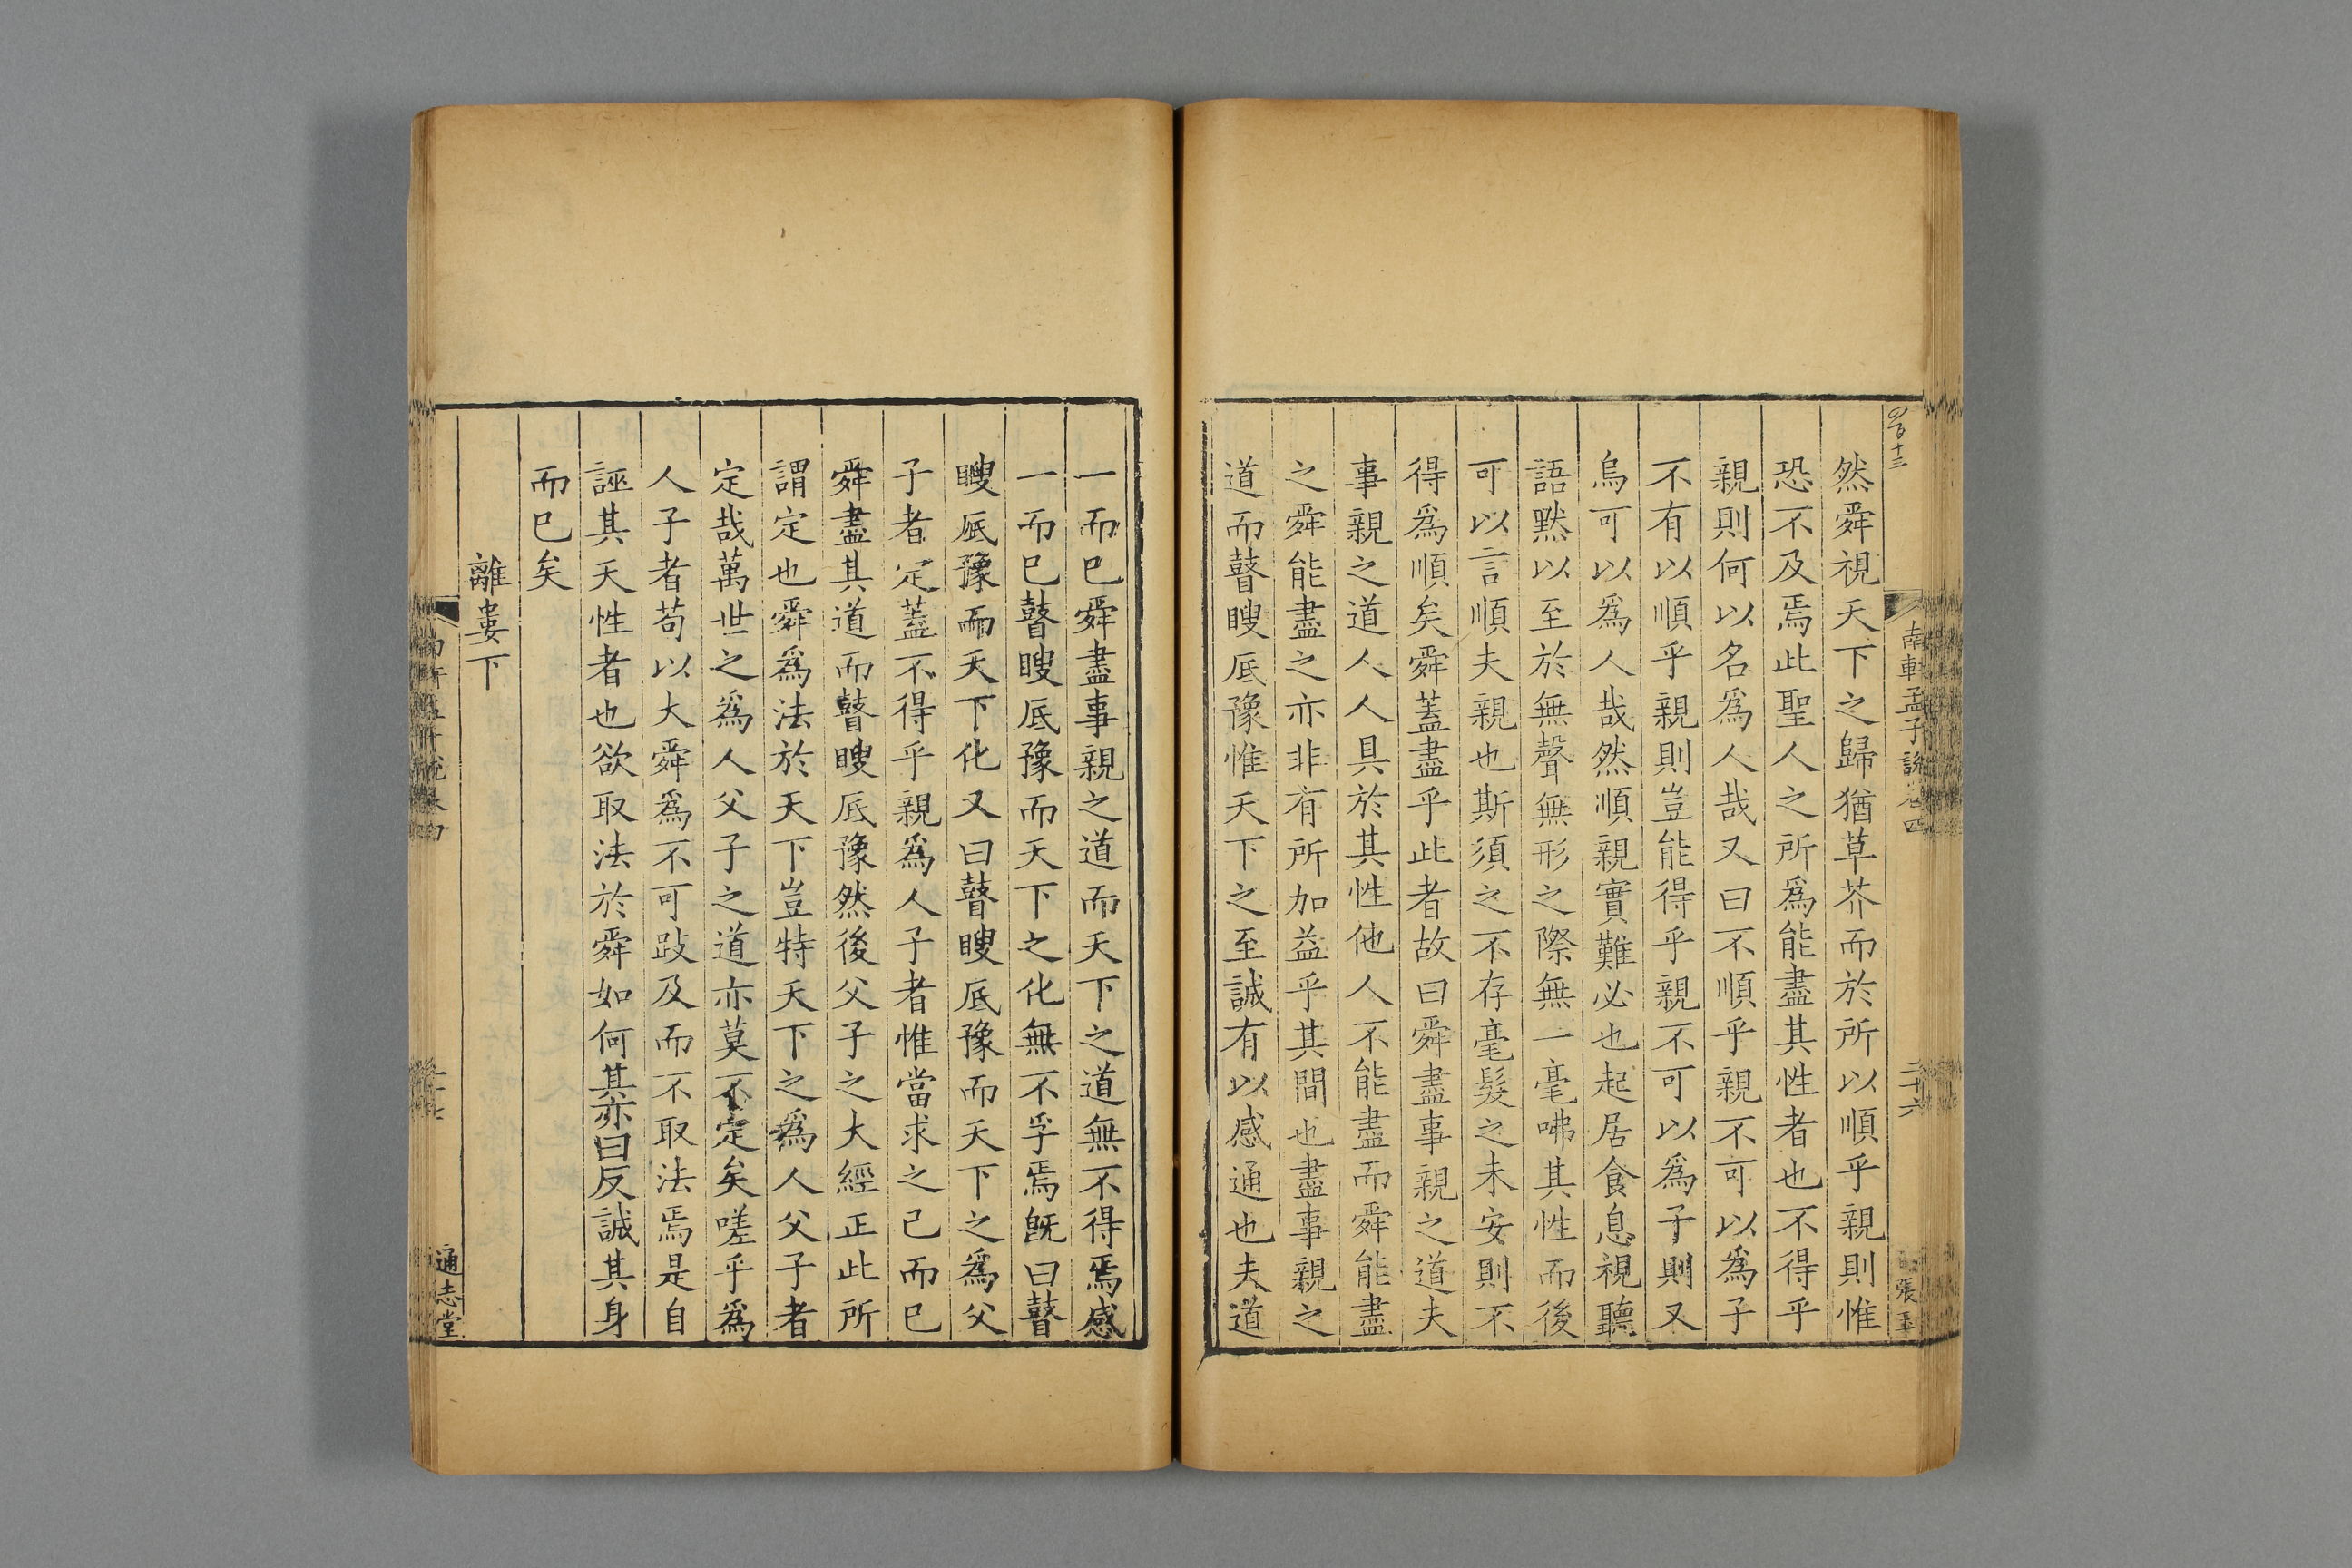 南軒孟子說卷四
二十六
然舜視天下之歸猶草芥而於所以順乎親則惟
恐不及焉此聖人之所爲能盡其性者也不得乎
親則何以名爲人哉又曰不順乎親不可以爲子
不有以順乎親則豈能得乎親不可以爲子則又
烏可以爲人哉然順親實難必也起居食息視聽
語默以至於無聲無形之際無一毫咈其性而後
可以言順夫親也斯須之不存毫髮之未安則不
得爲順矣舜蓋盡乎此者故曰舜盡事親之道夫
事親之道人人具於其性他人不能盡而舜能盡
之舜能盡之亦非有所加益乎其間也盡事親之
道而瞽瞍厎豫惟天下之至誠有以感通也夫道
一而已舜盡事親之道而天下之道無不得焉感
一而已瞽瞍厎豫而天下之化無不孚焉旣曰瞽
瞍厎豫而天下化又曰瞽瞍厎豫而天下之爲父
子者定蓋不得乎親爲人子者惟當求之己而已
舜盡其道而瞽瞍厎豫然後父子之大經正此所
謂定也舜爲法於天下豈特天下之爲人父子者
定哉萬世之爲人父子之道亦莫不定矣嗟乎爲
人子者苟以大舜爲不可跂及而不取法焉是自
誣其天性者也欲取法於舜如何其亦曰反誠其身
而已矣
離婁下
通志堂